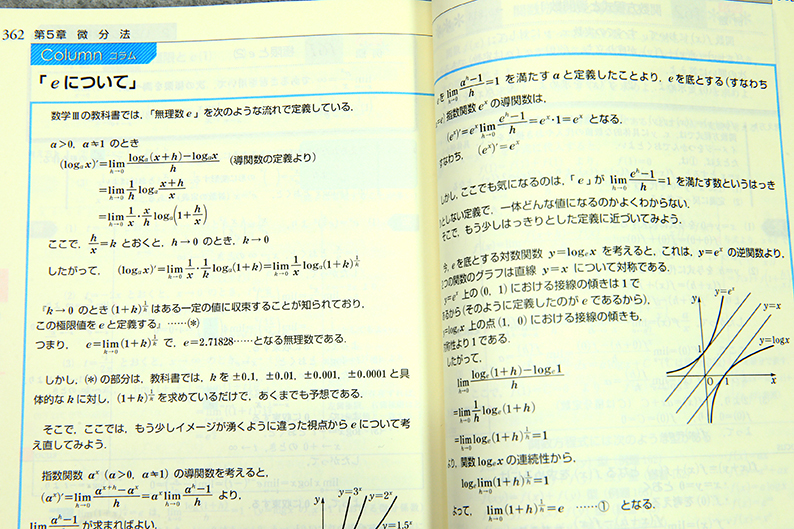 362 第5章 微分法
Column コラム
「eについて」
数学Ⅲの教科書では，「無理数e」を次のような流れで定義している．
a>0，a≒1 のとき
(logₐx)′=lim[h→0] (logₐ(x+h)−logₐx)/h （導関数の定義より）
=lim[h→0] 1/h logₐ (x+h)/x
=lim[h→0] 1/x・x/h logₐ(1+h/x)
ここで，h/x=k とおくと，h→0 のとき，k→0
したがって，(logₐx)′=lim[k→0] 1/x・1/k logₐ(1+k)=lim[k→0] 1/x logₐ(1+k)^(1/k)
『k→0 のとき (1+k)^(1/k) はある一定の値に収束することが知られており，
この極限値をeと定義する』……(*)
つまり，e=lim[k→0](1+k)^(1/k) で，e=2.71828……となる無理数である．
しかし，(*)の部分は，教科書では，kを±0.1，±0.01，±0.001，±0.0001と具
体的なkに対し，(1+k)^(1/k) を求めているだけで，あくまでも予想である．
そこで，ここでは，もう少しイメージが湧くように違った視点からeについて考
え直してみよう．
指数関数 aˣ (a>0，a≒1) の導関数を考えると，
(aˣ)′=lim[h→0] (aˣ⁺ʰ−aˣ)/h=aˣ lim[h→0] (aʰ−1)/h より，
lim (aʰ−1)/h が求まればよい．
y=3ˣ
y=2ˣ
y=1.5ˣ
y
を lim[h→0] (aʰ−1)/h=1 を満たすaと定義したことより，eを底とする(すなわち
指数関数eˣの導関数は，
(eˣ)′=eˣ lim[h→0] (eʰ−1)/h=eˣ・1=eˣ となる．
すなわち，(eˣ)′=eˣ
しかし，ここでも気になるのは，「e」が lim[h→0] (eʰ−1)/h=1 を満たす数というはっき
りとしない定義で，一体どんな値になるのかよくわからない．
そこで，もう少しはっきりとした定義に近づいてみよう．
今，eを底とする対数関数 y=logₑx を考えると，これは，y=eˣ の逆関数より，
つのグラフは直線 y=x について対称である．
y=eˣ 上の(0，1)における接線の傾きは1で
あるから(そのように定義したのがeであるから)，
y=logₑx 上の点(1，0)における接線の傾きも，
称性より1である．
したがって，
lim[h→0] (logₑ(1+h)−logₑ1)/h
=lim[h→0] 1/h logₑ(1+h)
=lim[h→0] logₑ(1+h)^(1/h)=1
より，関数 logₑx の連続性から，
logₑ lim[h→0](1+h)^(1/h)=1
よって，lim[h→0](1+h)^(1/h)=e ……① となる．
y
y=eˣ
y=x
y=logx
1
0
1
x